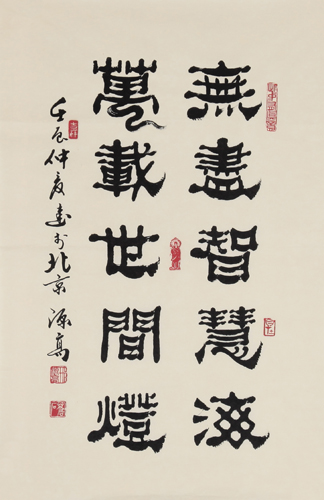 無盡智慧海
萬載世間燈
壬辰仲夏書於北京源高